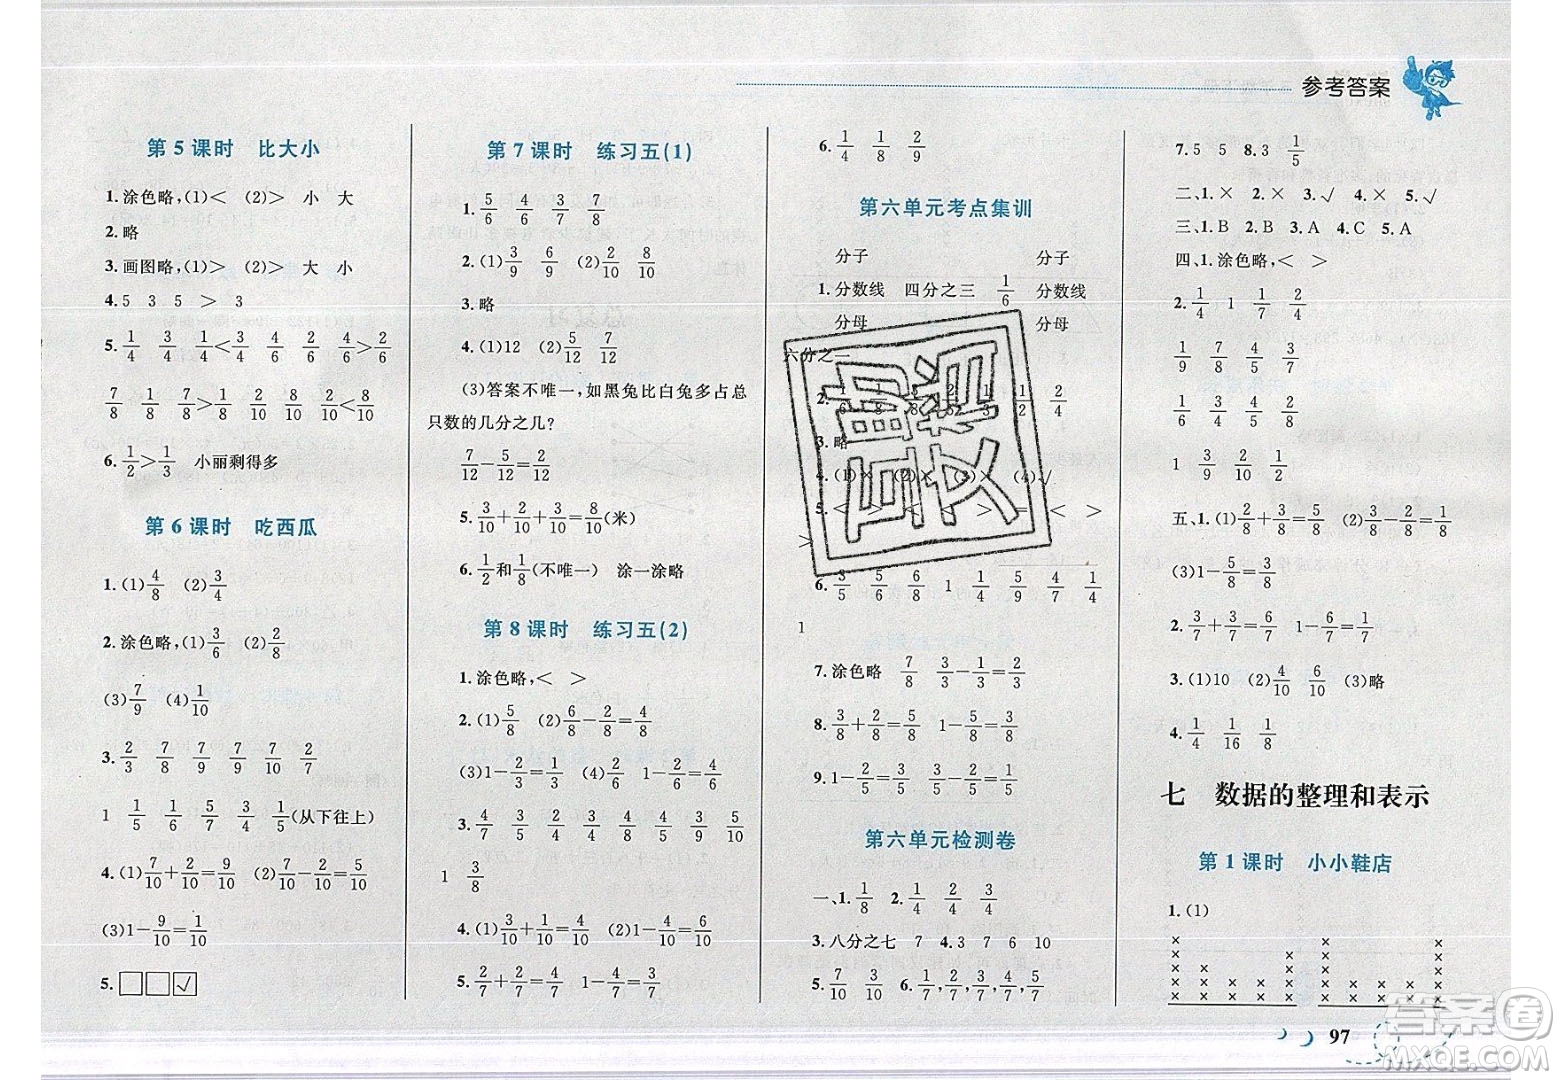 参考答案
第5课时 比大小
1.涂色略,(1)< (2)> 小 大
2.略
3.画图略,(1)> (2)> 大 小
4.5 3 5 > 3
5.1/4 3/4 1/4<3/4 4/6 2/6 4/6>2/6
7/8 8/8 7/8<8/8 8/10 2/10 2/10<8/10
6.1/2>1/3 小丽剩得多
第6课时 吃西瓜
1.(1)4/8 (2)3/4
2.涂色略,(1)3/6 (2)2/8
(3)7/9 (4)1/10
3.2/3 7/8 8/9 7/9 7/10 2/10
1 1/5 1/6 5/7 3/4 1/5(从下往上)
4.(1)7/10+2/10=9/10 (2)7/10-2/10=5/10
(3)1-9/10=1/10
5.□□☑
第7课时 练习五(1)
1.5/6 4/6 3/7 7/8
2.(1)3/9 6/9 (2)2/10 8/10
3.略
4.(1)12 (2)5/12 7/12
(3)答案不唯一,如黑兔比白兔多占总
只数的几分之几?
7/12-5/12=2/12
5.3/10+2/10+3/10=8/10(米)
6.1/2和1/8(不唯一) 涂一涂略
第8课时 练习五(2)
1.涂色略,< >
2.(1)5/8 (2)6/8-2/8=4/8
(3)1-2/3=1/3 (4)2/6 1-2/6=4/6
3.4/7 3/5 2/4 3/4 4/8 4/5 5/9 7/10
1 3/8
4.(1)4/10+2/10=6/10 (2)1-4/10=6/10
5.2/7+2/7=4/7 1-4/7=3/7
6.1/4 1/8 2/9
第六单元考点集训
分子 分子
1.分数线 四分之三 1/6 分数线
分母 分母
六分之一
3.略
6.3/5 5/6 6/8 1 1/4 5/9 4/7 1/4
1
7.涂色略 7/8 3/3-1/3=2/3
8.3/8+2/8=5/8 1-5/8=3/8
9.1-1/5-2/5=2/5
第六单元检测卷
一、1.1/8 2.1/4 2/4 3/4
3.八分之七 7 4.3 7 6 10
5.2/4 4/8 6.1/7,2/7,3/7,4/7,5/7
7.5 5 8.3 1/5
二、1.× 2.× 3.√ 4.× 5.√
三、1.B 2.B 3.A 4.C 5.A
四、1.涂色略,< >
2.1/4 1 1/7 2/4
1/9 5/8 4/5 3/7
1/6 4/6 3/9 2/8
1 3/9 2/10 1/2
五、1.(1)2/8+3/8=5/8 (2)3/8-2/8=1/8
(3)1-5/8=3/8
2.3/7+3/7=6/7 1-6/7=1/7
3.(1)10 (2)4/10 6/10 (3)略
4.1/4 1/16 1/8
七 数据的整理和表示
第1课时 小小鞋店
1.(1)
97
答案圈
MXQE.COM